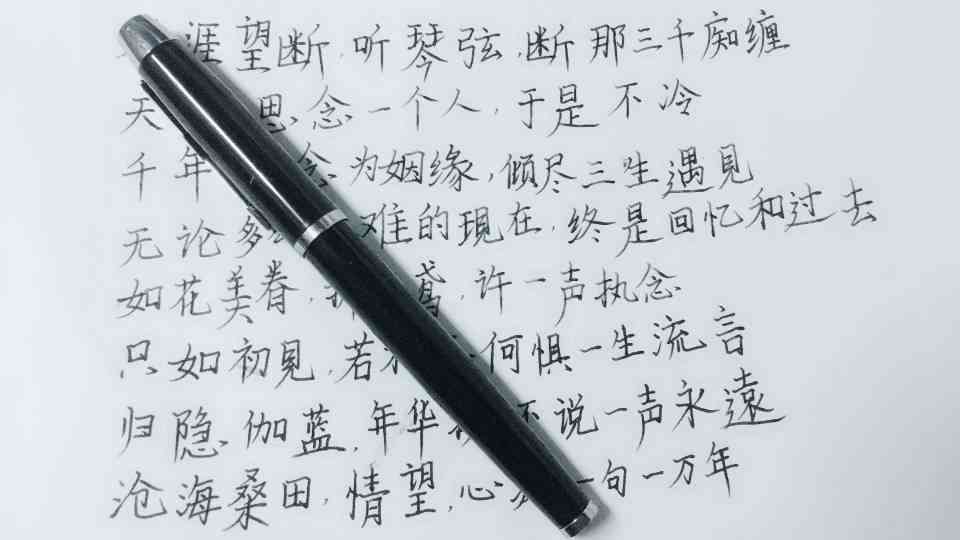 涯望断，听琴弦，断那三千痴缠
天 思念一个人，于是不冷
千年 念为姻缘，倾尽三生遇見
无论多 难的現在，终是回忆和过去
如花美眷， 鸢，许一声执念
只如初見，若 何惧一生流言
归隐伽蓝，年华 不说一声永遠
沧海桑田，情望，心 一句一万年